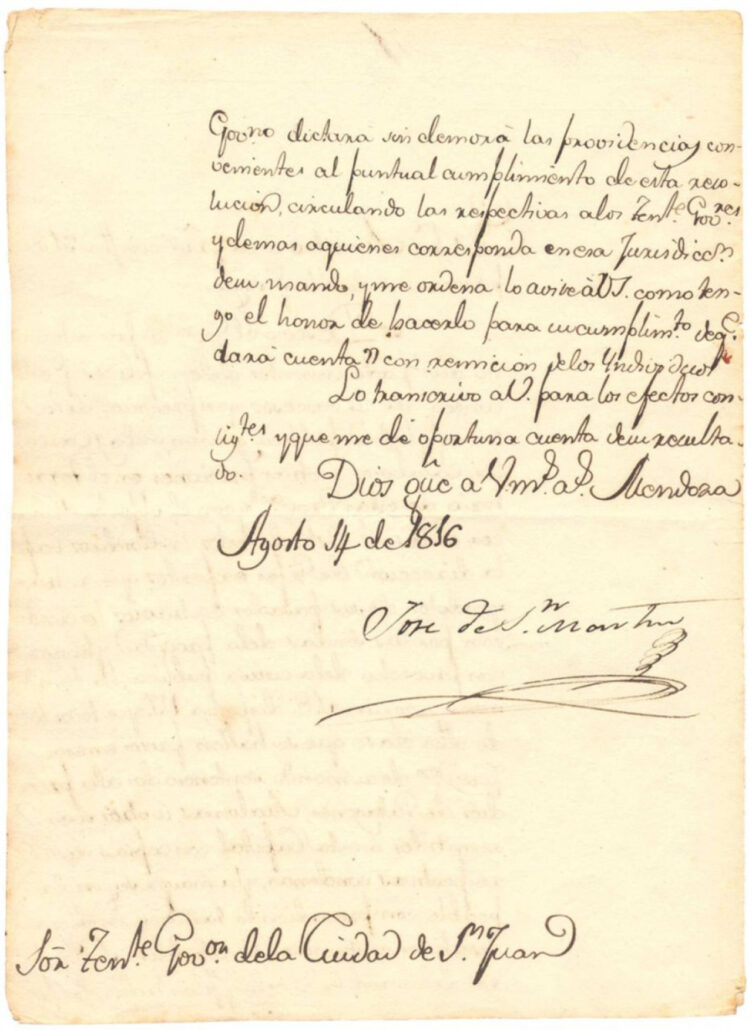 Govno dictará sin demora las providencias con-
venientes al puntual cumplimiento de esta reso-
lucion, circulando las respectivas alos Tente Govres
y demas aquienes corresponda en esa Jurisdiccn
desu mando, y me ordena lo avise à VS. como ten-
go el honor de hacerlo para su cumplimto deqe
dará cuenta con remision delos Yndios
Lo transcrivo aV. para los efectos con-
sigtes y que me dé oportuna cuenta desu resulta-
do. Dios gûe a V. ms. as. Mendoza
Agosto 14 de 1816
Jose de Sn Martin
Sōr Tente Govor dela Ciudad de Sn Juan